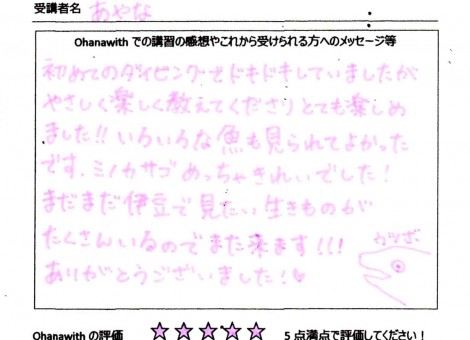 受講者名 あやな
Ohanawith での講習の感想やこれから受けられる方へのメッセージ等
初めてのダイビングでドキドキしていましたが
やさしく楽しく教えてくださりとても楽しめ
ました!! いろいろな魚も見られてよかった
です。ミノカサゴめっちゃきれいでした!
まだまだ伊豆で見たい生きものが
たくさんいるのでまた来ます!!!
ありがとうございました!
Ohanawith の評価 ☆☆☆☆☆ 5 点満点で評価してください!